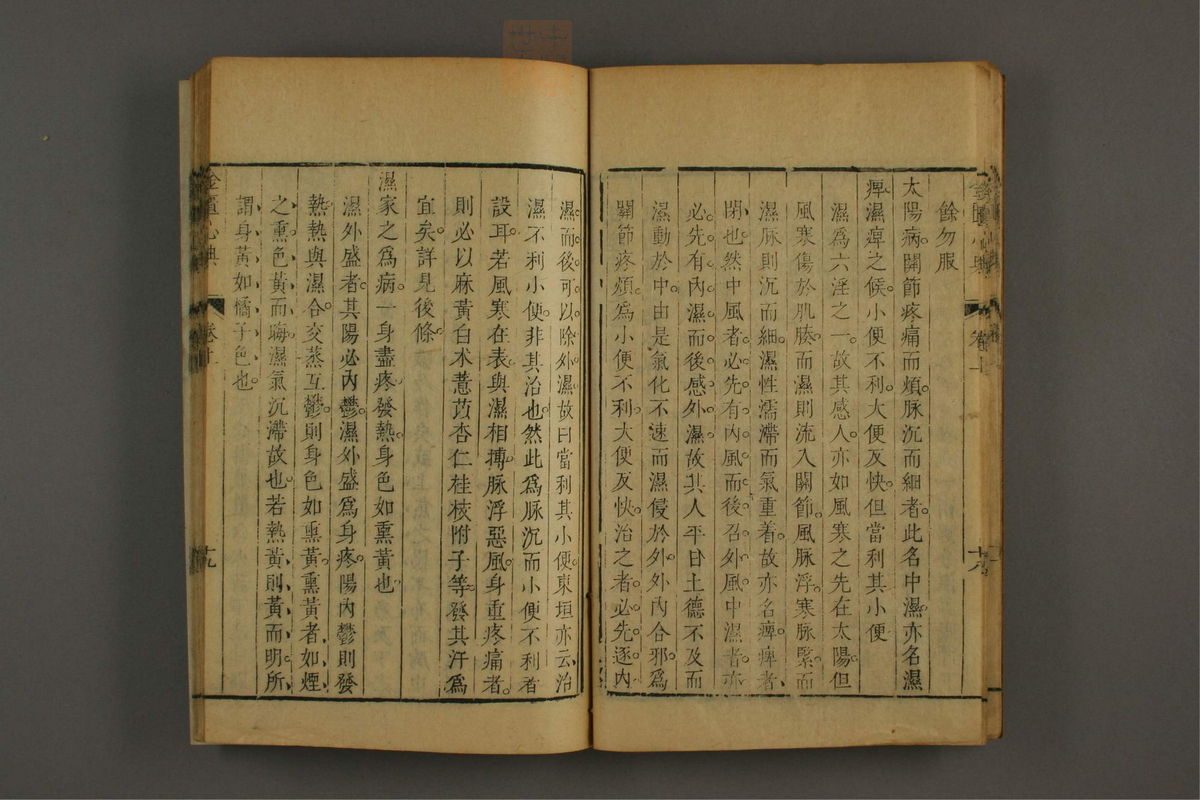 餘勿服
太陽病關節疼痛而煩脉沉而細者此名中濕亦名濕
痺濕痺之候小便不利大便反快但當利其小便
濕爲六淫之一故其感人亦如風寒之先在太陽但
風寒傷於肌腠而濕則流入關節風脉浮寒脉緊而
濕脉則沉而細濕性濡滯而氣重着故亦名痺痺者
閉也然中風者必先有内風而後召外風中濕者亦
必先有内濕而後感外濕故其人平日土德不及而
濕動於中由是氣化不速而濕侵於外外内合邪爲
關節疼煩爲小便不利大便反快治之者必先逐内
濕而後可以除外濕故曰當利其小便東垣亦云治
濕不利小便非其治也然此爲脉沉而小便不利者
設耳若風寒在表與濕相摶脉浮惡風身重疼痛者
則必以麻黄白术薏苡杏仁桂枝附子等發其汗爲
宜矣詳見後條
濕家之爲病一身盡疼發熱身色如熏黄也
濕外盛者其陽必内鬱濕外盛爲身疼陽内鬱則發
熱熱與濕合交蒸互鬱則身色如熏黄熏黄者如煙
之熏色黄而晦濕氣沉滯故也若熱黄則黄而明所
謂身黄如橘子色也
金匱心典
卷上
十九